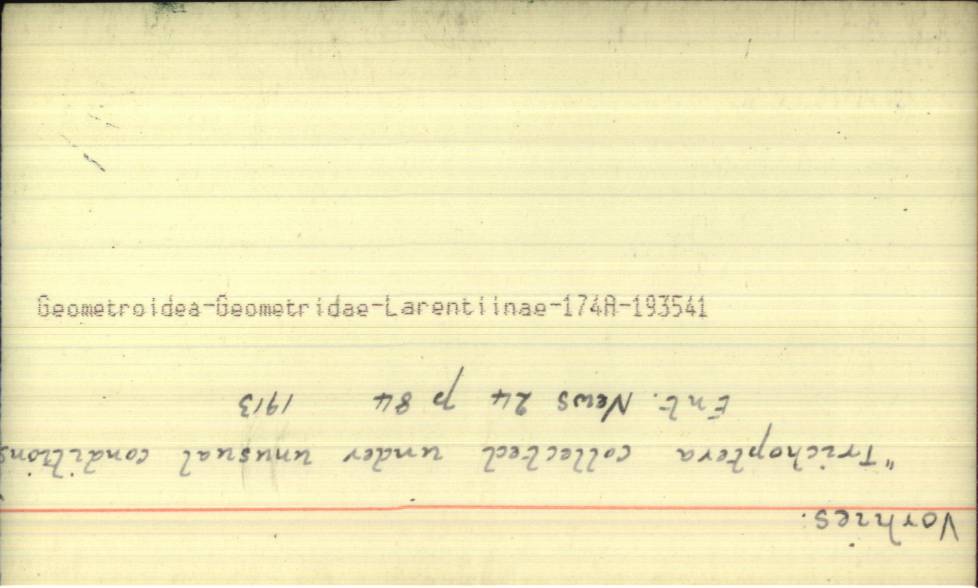 Geometroidea-Geometridae-Larentiinae-174A-193541
Vorhies:
"Trichoptera collected under unusual conditions
Ent. News 24 p 84 1913